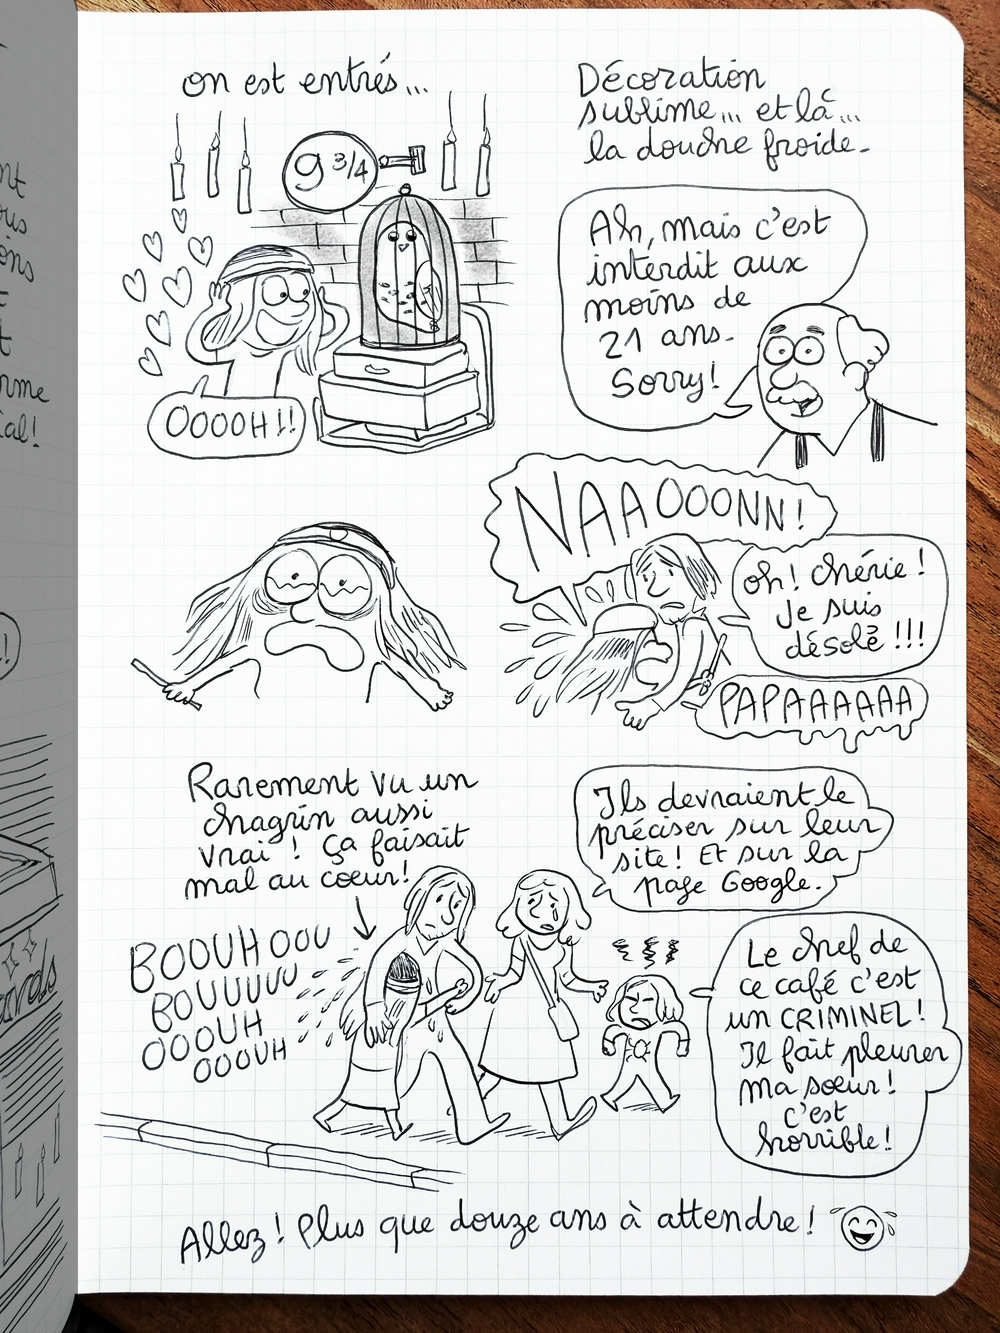 on est entrés...
9 3/4
OOOOH!!
Décoration
sublime... et là...
la douche froide.
Ah, mais c'est
interdit aux
moins de
21 ans.
Sorry!
NAAOOONN!
oh! chérie!
Je suis
désolé!!!
PAPAAAAAA
Rarement vu un
chagrin aussi
vrai! ça faisait
mal au cœur!
BOOUHOOU
BOUUUUU
OOOUH
OOOUH
Ils devraient le
préciser sur leur
site! Et sur la
page Google.
Le chef de
ce café c'est
un CRIMINEL!
Il fait pleurer
ma sœur!
c'est
horrible!
Allez! Plus que douze ans à attendre!
nt
ous
ons
t
rme
ial!
!!
ards